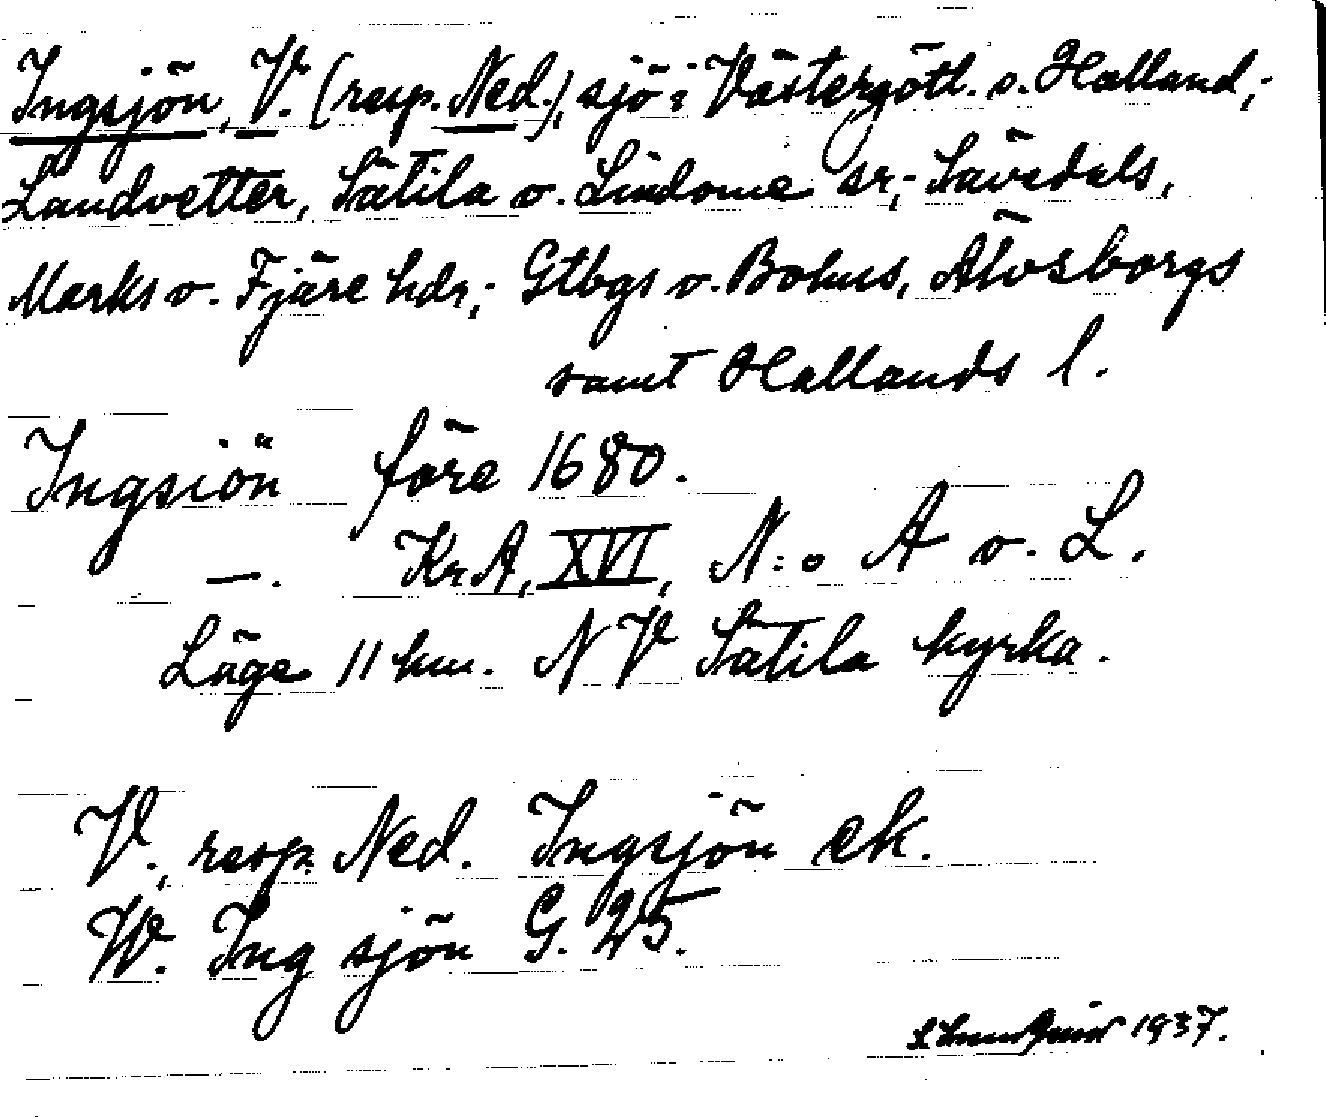 Ingsjön, V. (resp. Ned.), sjö i Västergötl. o. Halland;
Landvetter, Sätila o. Lindome sr; Sävedals,
Marks o. Fjäre hdr; Gtbgs o. Bohus, Älvsborgs
samt Hallands l.
Ingsiön före 1680.
—. KrA, XVI, N:o A o. L.
Läge 11 km. NV Sätila kyrka.
V., resp. Ned. Ingsjön ek.
W. Ing sjön G. 25.
1937.